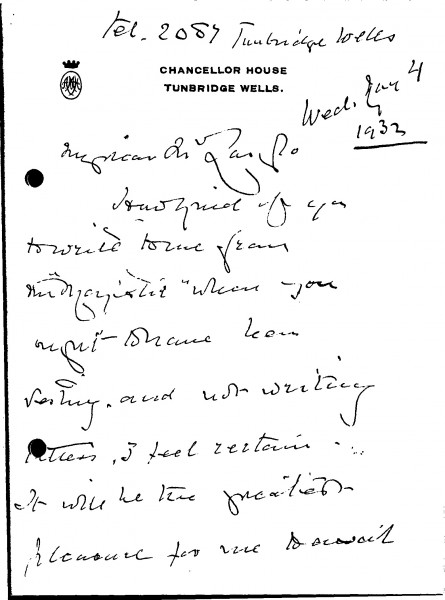 Tel. 2087 Tunbridge Wells
CHANCELLOR HOUSE
TUNBRIDGE WELLS.
Wed. Jan 4
1933
My dear Mr
How kind of you
to write to me from
the "Majestic" when you
ought to have been
resting, and not writing
letters, I feel certain
It will be the greatest
pleasure for me to await